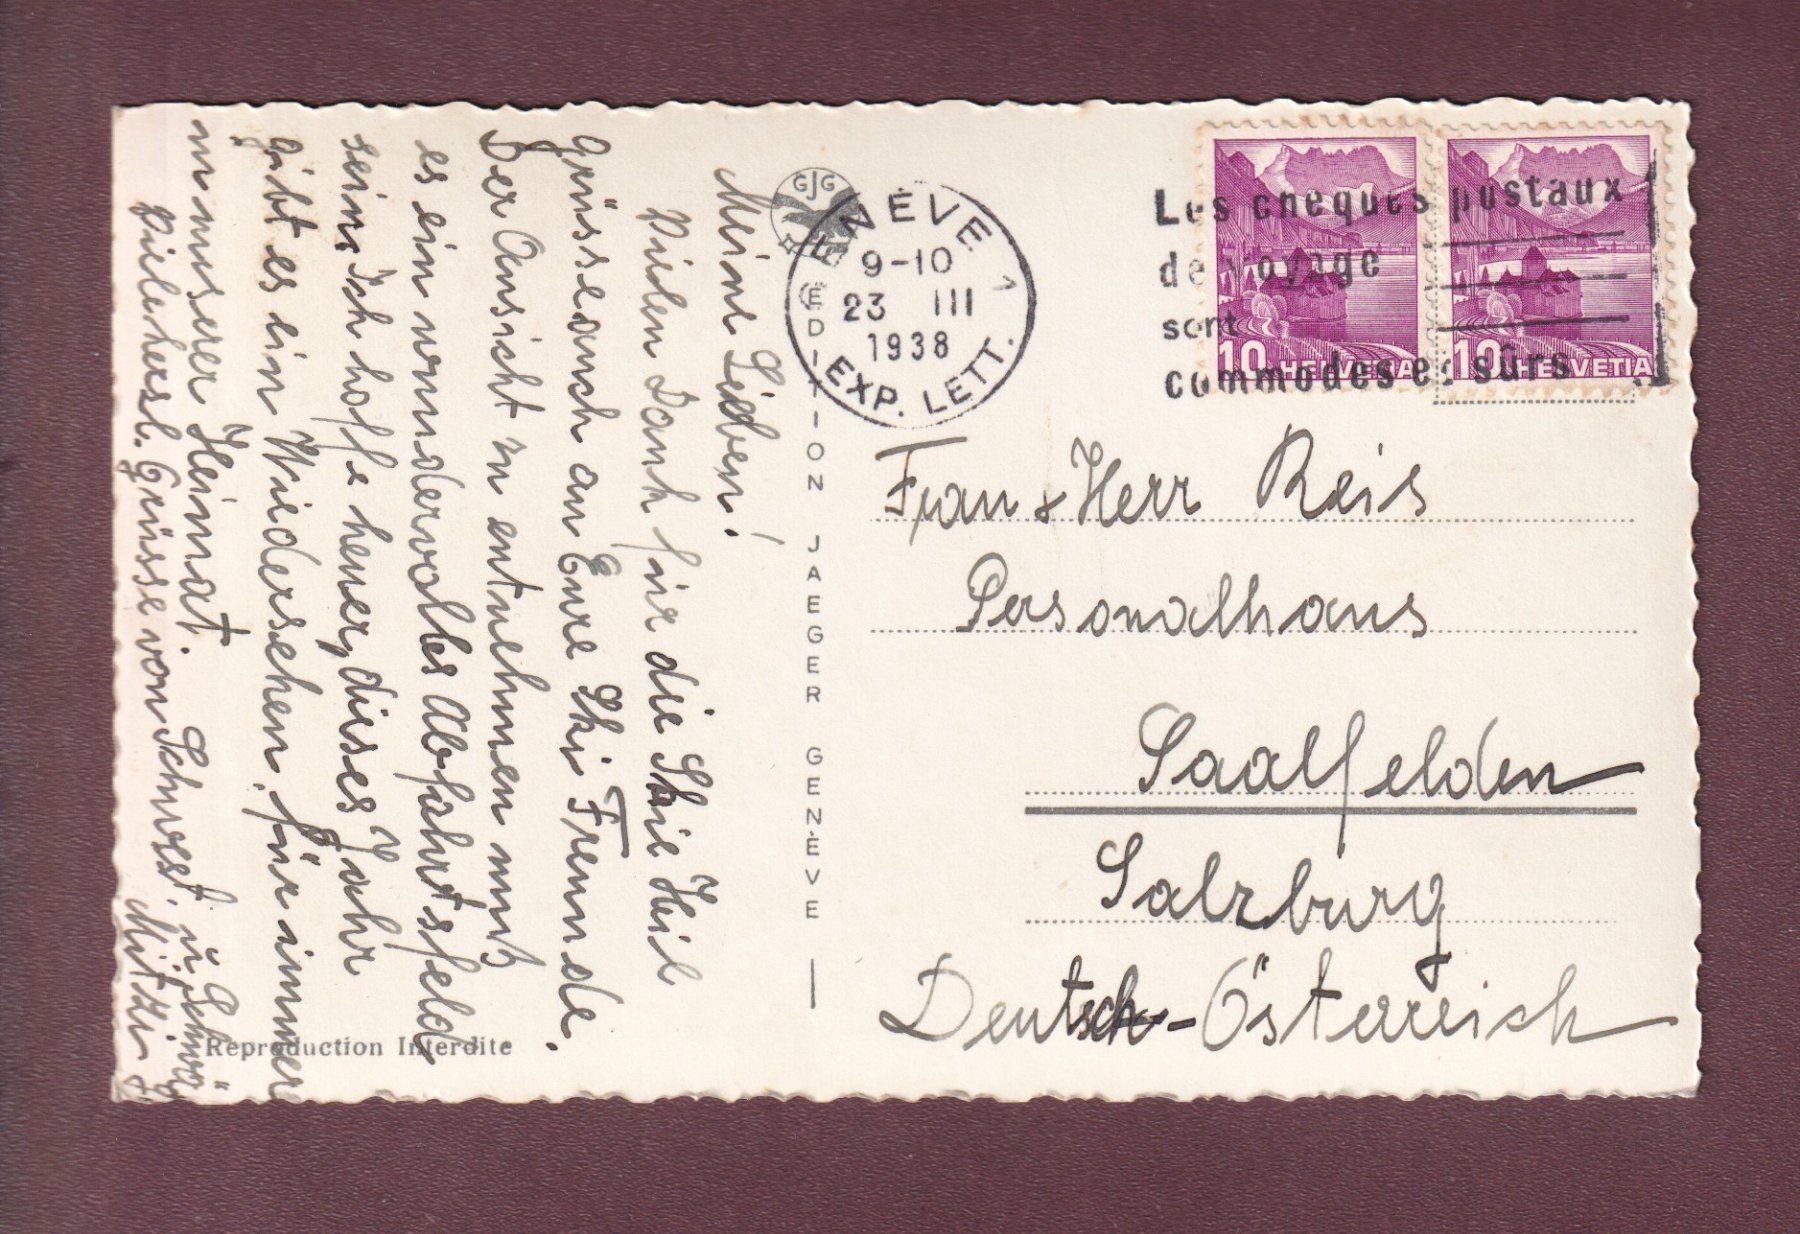 Meine Lieben!
Vielen Dank für die Skie Heil
Grüsse auch an Eure Ski Freunde.
Der Ansicht zu entnehmen muß
es ein wundervolles Abfahrtsfeld
sein, Ich hoffe heuer, dieses Jahr
gibt es ein Wiedersehen, für immer
in unserer Heimat.
Viele herzl. Grüsse von Schwest. u Schwäg
Mitzi
GJG
EDITION JAEGER GENÈVE
Reproduction Interdite
GENÈVE 1
9-10
23 III
1938
EXP. LETT.
Les chèques postaux
de voyage
sont
commodes et sûrs
10 HELVETIA
10 HELVETIA
Frau & Herr Reis
Personalhaus
Saalfelden
Salzburg
Deutsch-Österreich